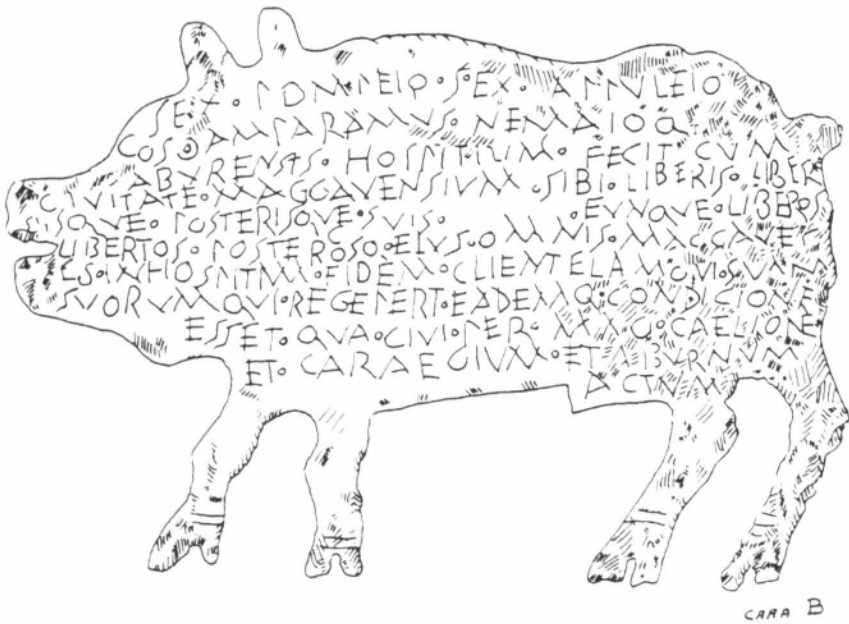 SEX · POMPEIO · SEX · APPULEIO
COS · AMPARAMUS · NEMAIOQ
ABURENSIS · HOSPITIUM · FECIT · CUM
CIVITATE · MAGGAVENSIUM · SIBI · LIBERIS · LIBER
ISQUE · POSTERISQUE · SUIS · EUNQUE · LIBEROS
LIBERTOS · POSTEROSQ · EIUS · OMNIS · MAGGAVE
ES · IN HOSPITIUM · FIDEM · CLIENTELAMQUE
SUORUMQUE · RECEPERT · EADEMQ · CONDICIONE
ESSET · QUA · CIVI · PER · MAG · CAELIONE
ET · CARAEGIUM · ET ABURNUM
ACTUM
CARA B